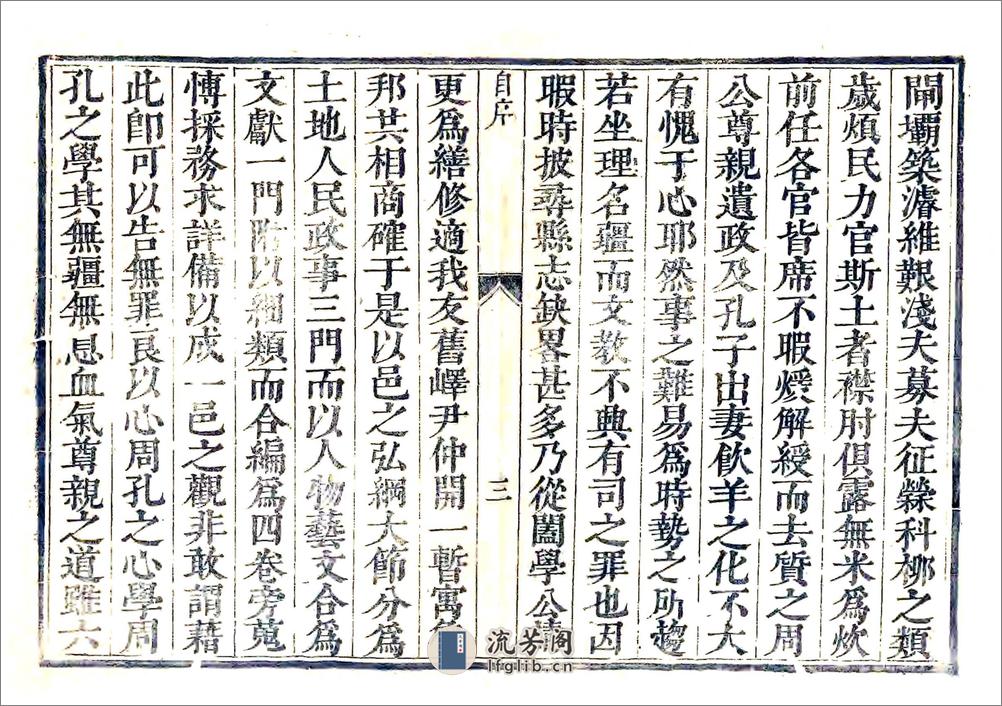 閘壩築濬維艱淺夫募夫征蘩科栁之類
歲煩民力官斯土者襟肘俱露無米爲炊
前任各官皆席不暇煖解綬而去質之周
公尊親遺政及孔子出妻飲羊之化不大
有愧于心耶然事之難易爲時勢之所趨
若坐理名疆而文教不興有司之罪也因
暇時披尋縣志缺畧甚多乃從闔學公請
自序
三
更爲繕修適我友舊嶧尹仲開一暫寓
邦共相商確于是以邑之弘綱大節分爲
土地人民政事三門而以人物藝文合爲
文獻一門附以細類而合編爲四卷旁蒐
慱採務求詳備以成一邑之觀非敢謂藉
此卽可以告無罪良以心周孔之心學周
孔之學其無疆無息血氣尊親之道雖六
流芳阁
lfglib.cn